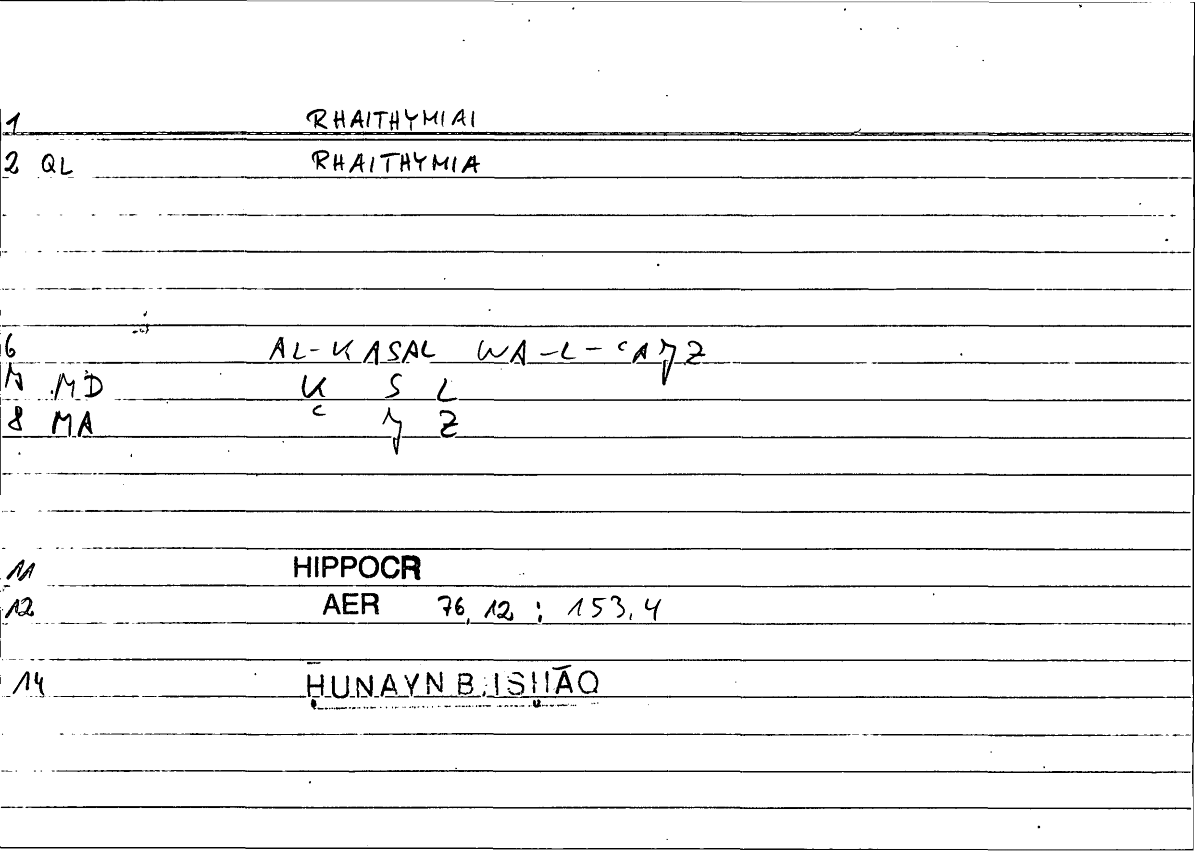 1 RHAITHYMIAI
2 QL RHAITHYMIA
6 AL-KASAL WA-L-ʿAJZ
7 MD K S L
8 MA ʿ J Z
11 HIPPOCR
12 AER 76,12 ; 153,4
14 ḤUNAYN B. ISḤĀQ